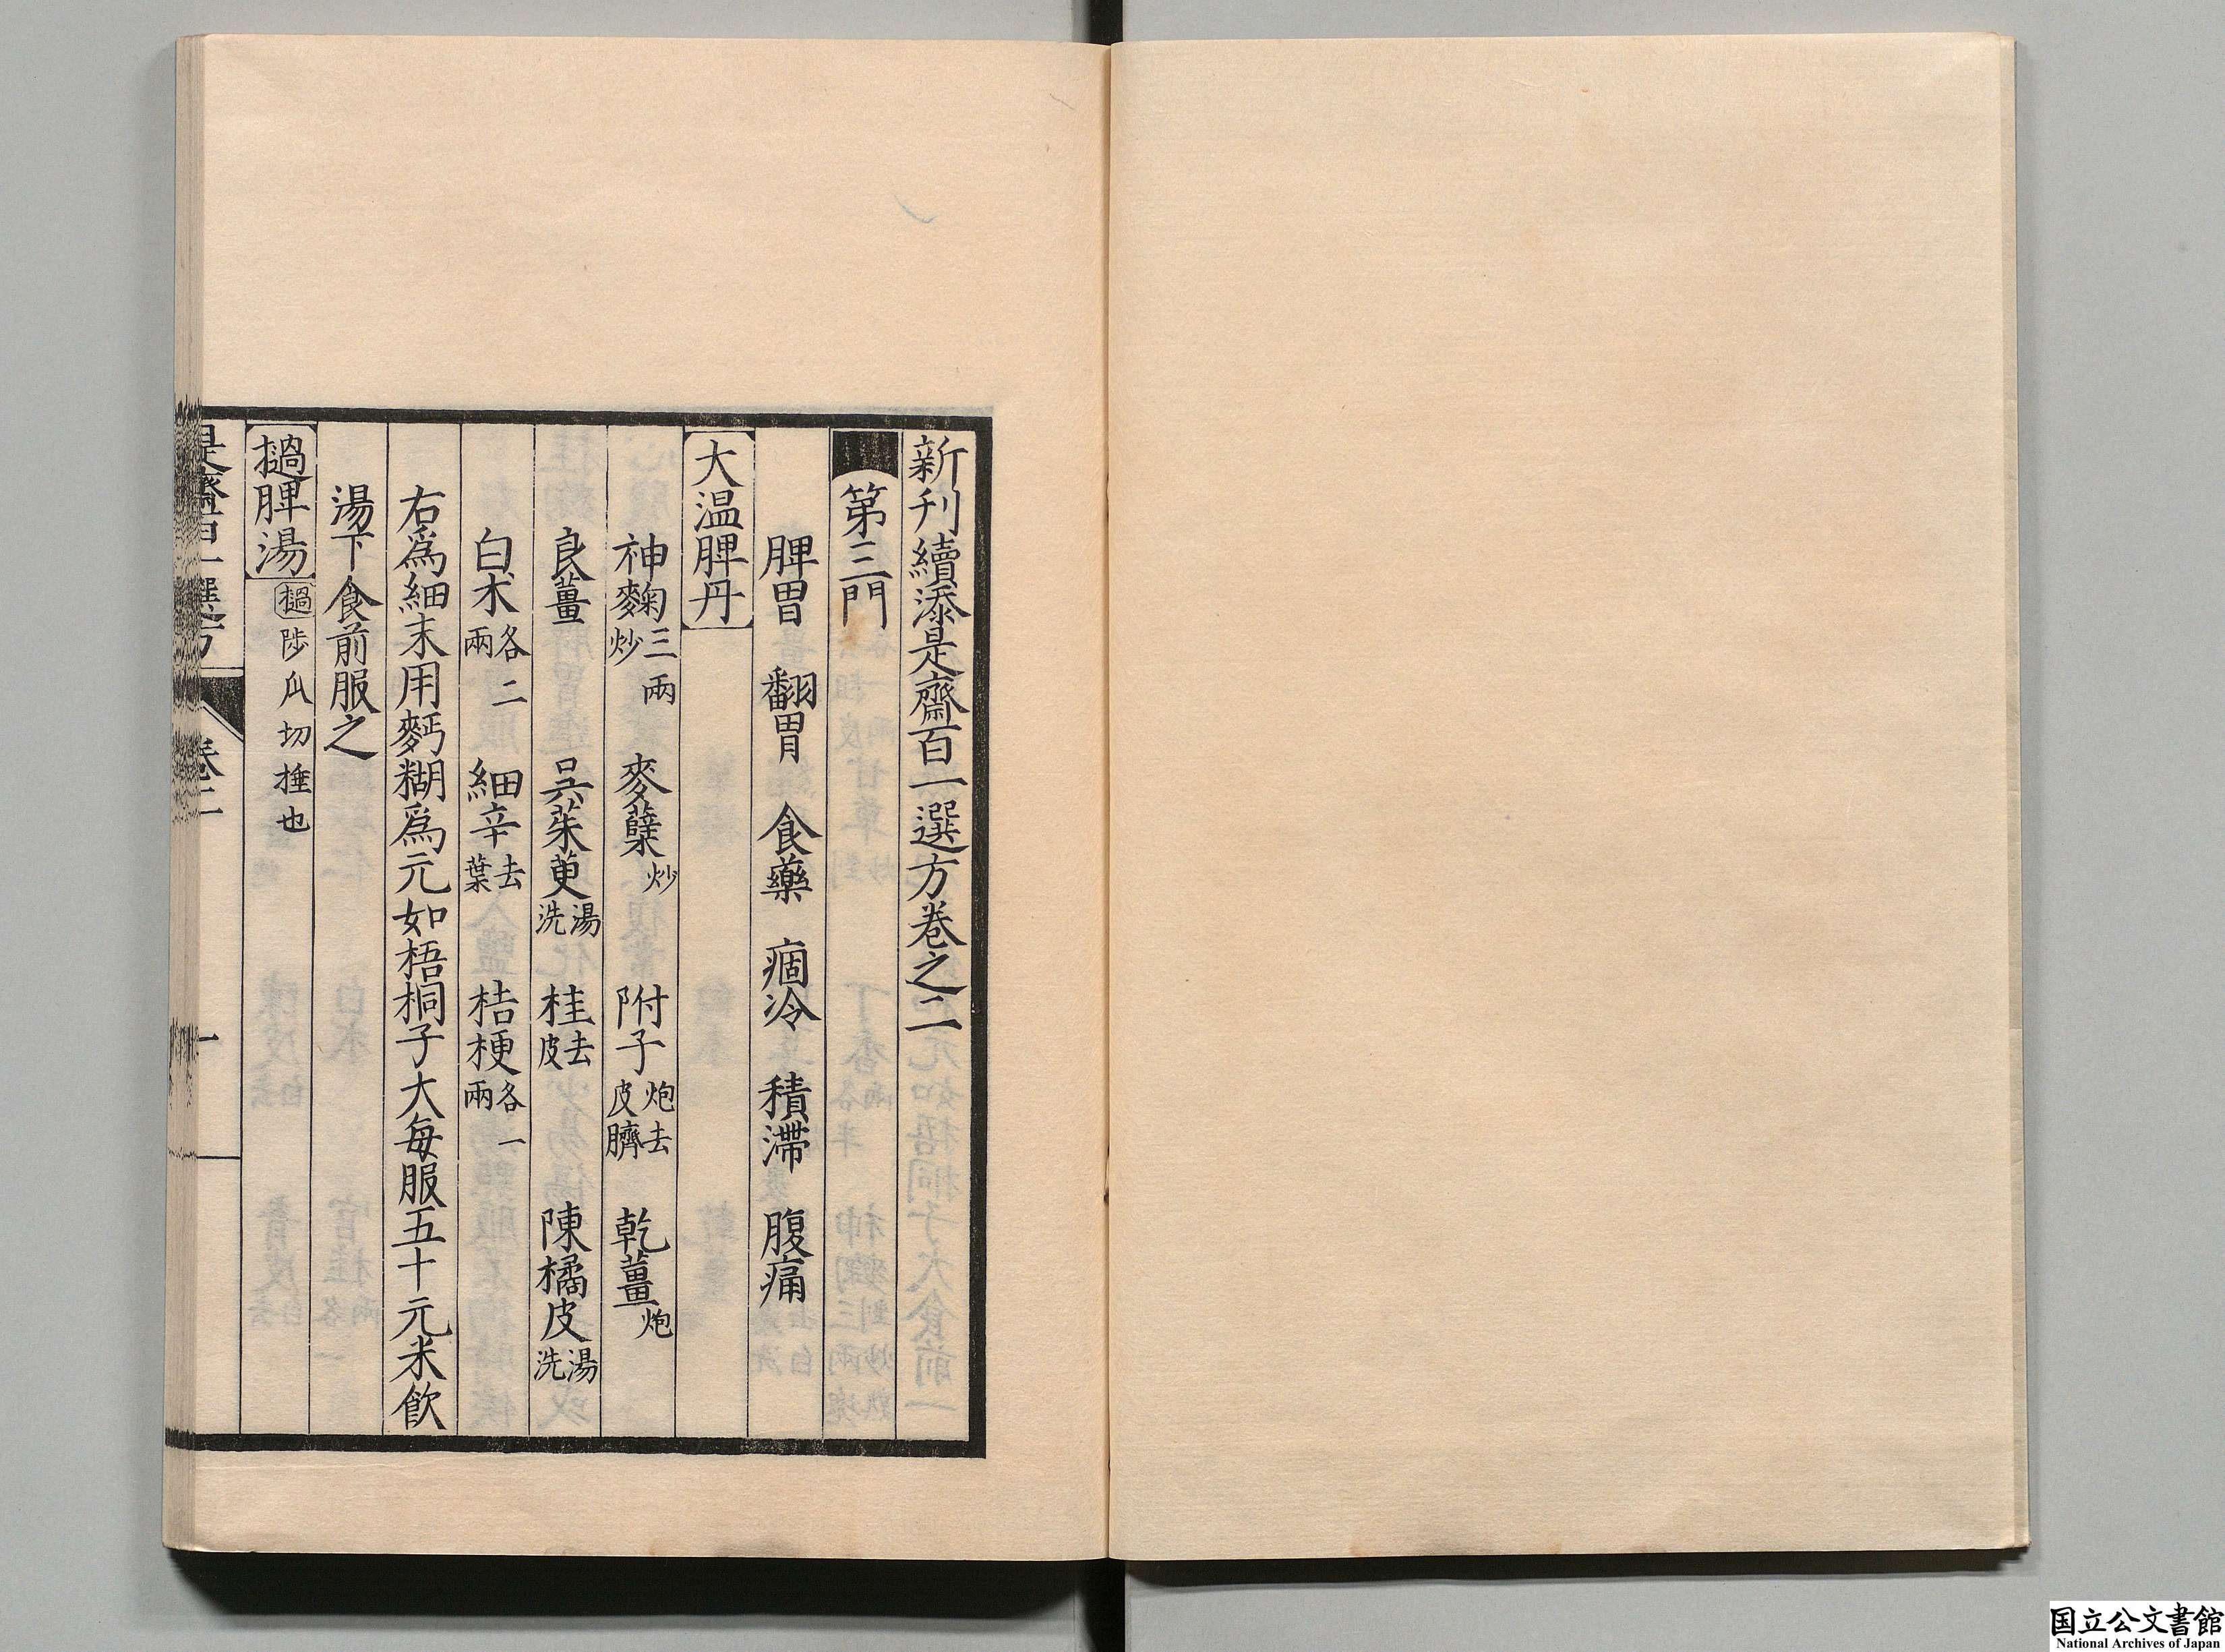 新刊續添是齋百一選方卷之二
第三門
脾胃　翻胃　食藥　痼冷　積滯　腹痛
大温脾丹
神麴三兩炒　麥蘖炒　附子炮去皮臍　乾薑炮
良薑　呉茱萸湯洗　桂去皮　陳橘皮湯洗
白朮各二兩　細辛去葉　桔梗各一兩
右爲細末用麪糊爲元如梧桐子大每服五十元米飮
湯下食前服之
撾脾湯 撾陟瓜切捶也
是齋百一選方　卷二　一
国立公文書館
National Archives of Japan